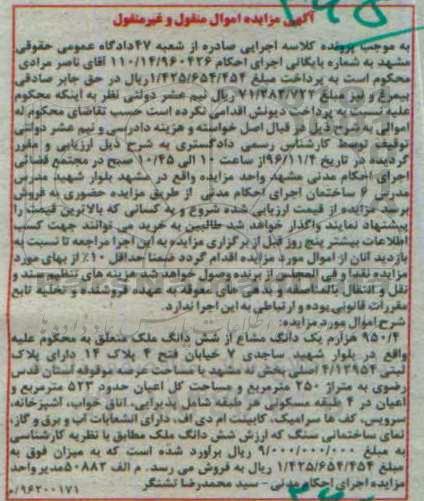 آگهی مزایده اموال منقول و غیرمنقول
به موجب پرونده کلاسه اجرایی صادره از شعبه ۴۷دادگاه عمومی حقوقی
مشهد به شماره بایگانی اجرای احکام ۱۱۰/۱۴/۹۶۰۴۲۶ آقای ناصر مرادی
محکوم است به پرداخت مبلغ ۱/۴۲۵/۶۵۴/۴۵۴ریال در حق جابر صادقی
بیمرغ و نیز مبلغ ۷۱/۲۸۲/۷۲۲ ریال نیم عشر دولتی نظر به اینکه محکوم
علیه نسبت به پرداخت دیونش اقدامی نکرده است حسب تقاضای محکوم له
اموالی به شرح ذیل در قبال اصل خواسته و هزینه دادرسی و نیم عشر دولتی
توقیف توسط کارشناس رسمی دادگستری به شرح ذیل ارزیابی و مقرر
گردیده در تاریخ ۹۶/۱۱/۴از ساعت ۱۰ الی ۱۰/۴۵ صبح در مجتمع قضائی
اجرای احکام مدنی مشهد واحد مزایده واقع در مشهد بلوار شهید مدرس
مدرس ۶ ساختمان اجرای احکام مدنی از طریق مزایده حضوری به فروش
برسد مزایده از قیمت ارزیابی شده شروع و به کسانی که بالاترین قیمت را
پیشنهاد نمایند واگذار خواهد شد طالبین به خرید می توانند جهت کسب
اطلاعات بیشتر پنج روز قبل از برگزاری مزایده به این اجرا مراجعه تا نسبت به
بازدید آنان از اموال مورد مزایده اقدام گردد ضمنا حداقل ۱۰٪ از بهای مورد
مزایده نقدا و فی المجلس از برنده وصول خواهد شد هزینه های تنظیم سند و
نقل و انتقال بالمناصفه و بدهی های معوقه به عهده فروشنده و تخلیه تابع
مقررات قانونی بوده و ارتباطی به این اجرا ندارد.
شرح اموال مورد مزایده:
۹۵۰/۴ هزارم یک دانگ مشاع از شش دانگ ملک متعلق به محکوم علیه
واقع در بلوار شهید ساجدی ۷ خیابان فتح ۴ پلاک ۱۴ دارای پلاک
ثبتی ۴/۱۳۹۵۴ اصلی بخش نه مشهد با مساحت عرصه موقوفه آستان قدس
رضوی به متراژ ۲۵۰ مترمربع و مساحت کل اعیان حدود ۵۲۳ مترمربع و
اعیان در ۴ طبقه مسکونی هر طبقه شامل پذیرایی، اتاق خواب، آشپزخانه،
سرویس، کف ها سرامیک، کابینت ام دی اف، دارای انشعابات آب و برق و گاز،
نمای ساختمانی سنگ که ارزش شش دانگ ملک مطابق با نظریه کارشناسی
به مبلغ ۹/۰۰۰/۰۰۰/۰۰۰ ریال برآورد شده است که به میزان فوق به
مبلغ ۱/۴۲۵/۶۵۴/۴۵۴ ریال به فروش می رسد. م الف ۵۰۸۸۲مدیر واحد
مزایده اجرای احکام مدنی - سید محمدرضا تشتگر
۹۶۲۰۰۱۷۱/